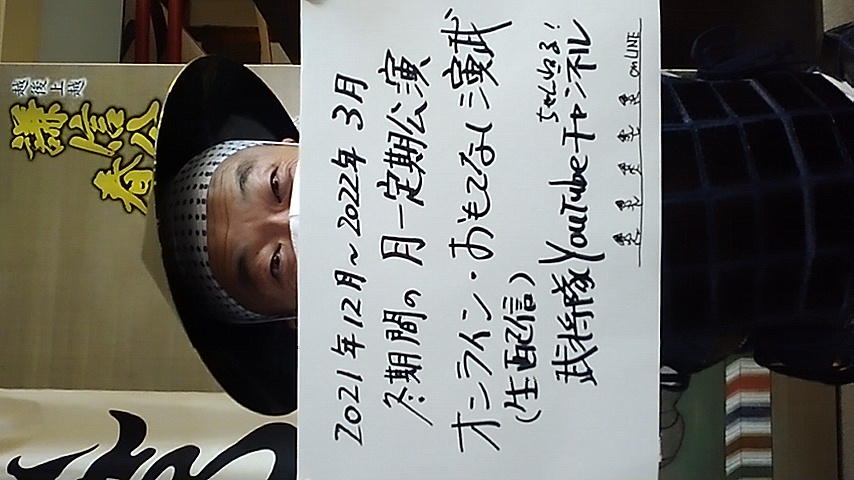 越後上越
謙信公
春
2021年12月～2022年3月
冬期間の月一定期公演
オンライン・おもてなし演武
(生配信)
ちゃんねる!
武将隊YouTubeチャンネル
onLINE